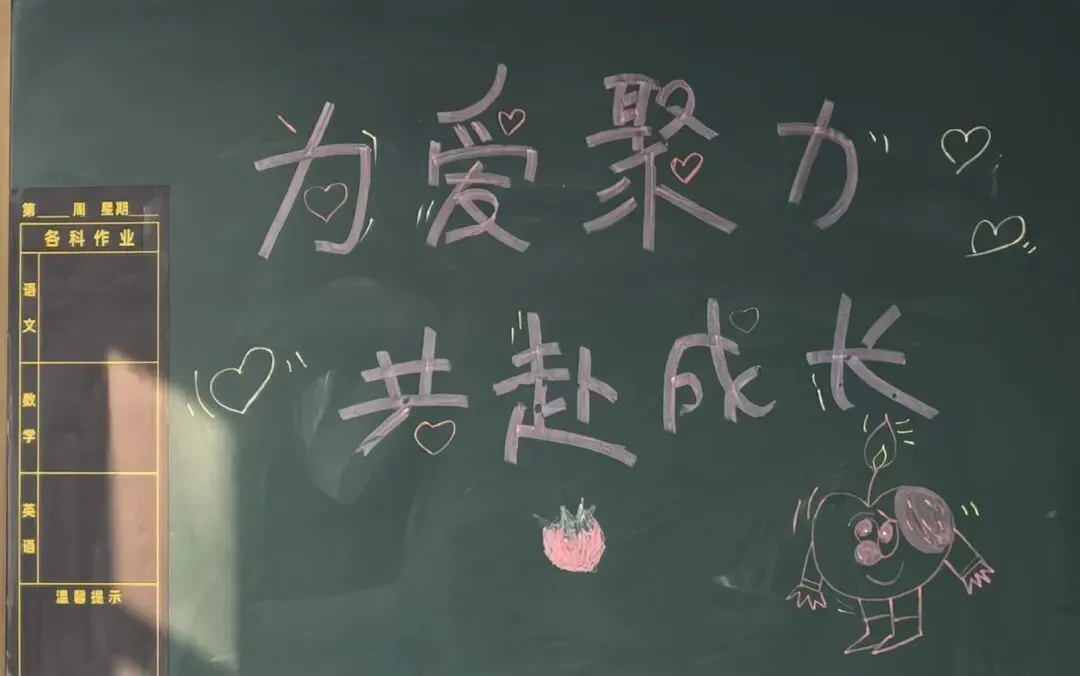 为爱聚力
共赴成长
第____周 星期____
各科作业
语文
数学
英语
温馨提示